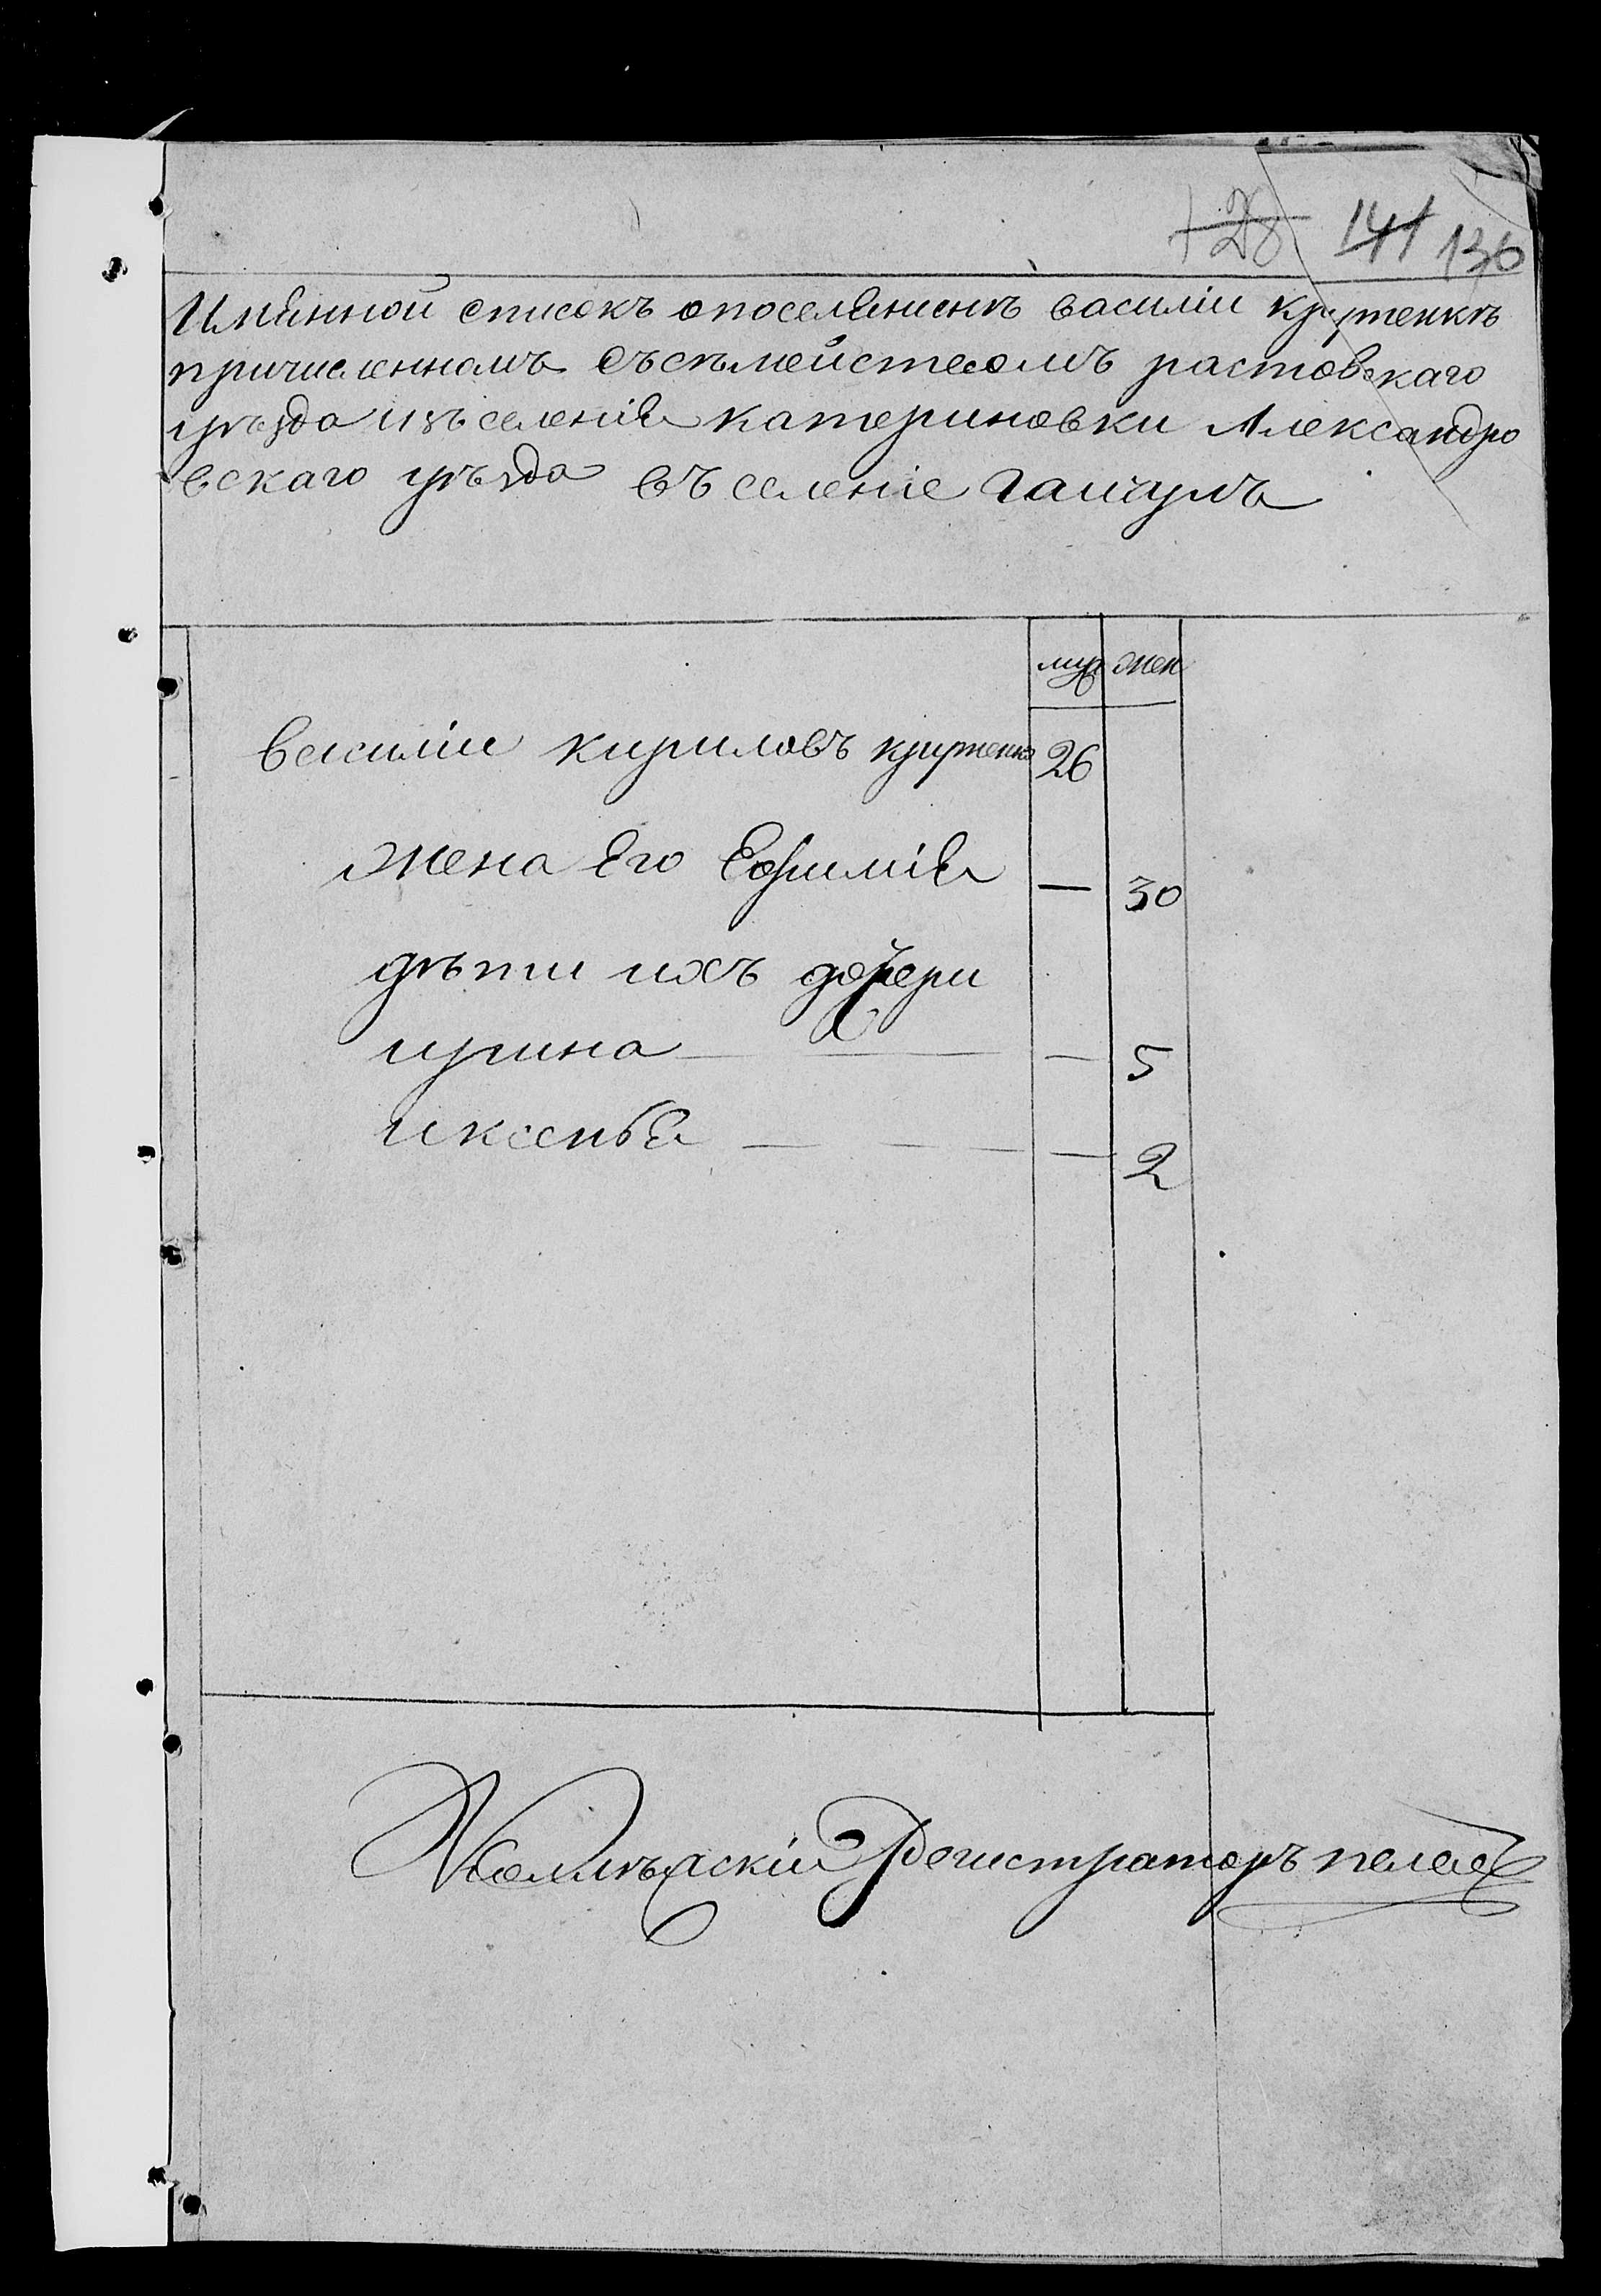 128 141 136
Имянной списокъ опоселянинѣ василіи крутенкѣ
причисленномъ съсѣмействомъ растовскаго
уѣзда изъ селенія катериновки Александро
вскаго уѣзда въ селеніе Гашунъ
муж жен
василіи кириловъ крутенко 26
жена Его Ефимія — 30
дѣти ихъ дочери
ирина — — — 5
иксенья — — — — 2
Регистраторъ